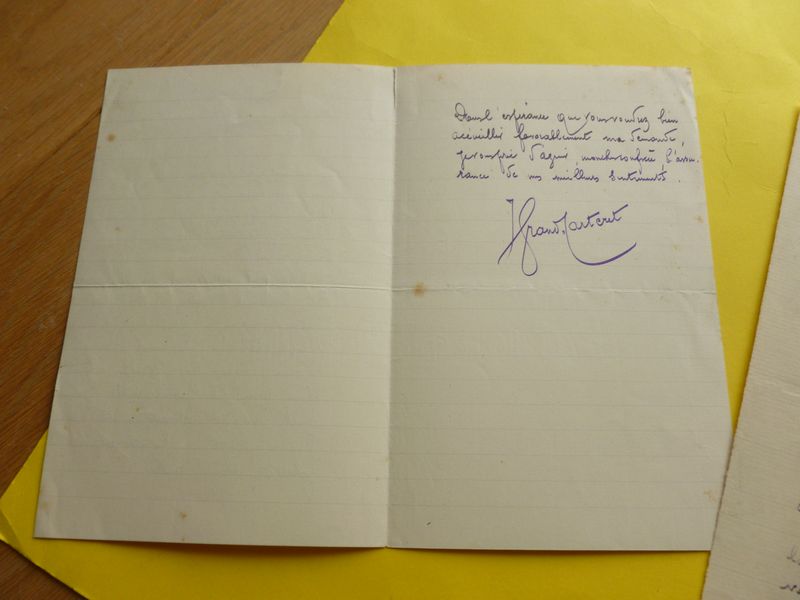 Dans l'espérance que vous voudrez bien
accueillir favorablement ma demande,
je vous prie d'agréer, mon cher confrère, l'assu-
rance de mes meilleurs sentiments.
J Grand-Carteret